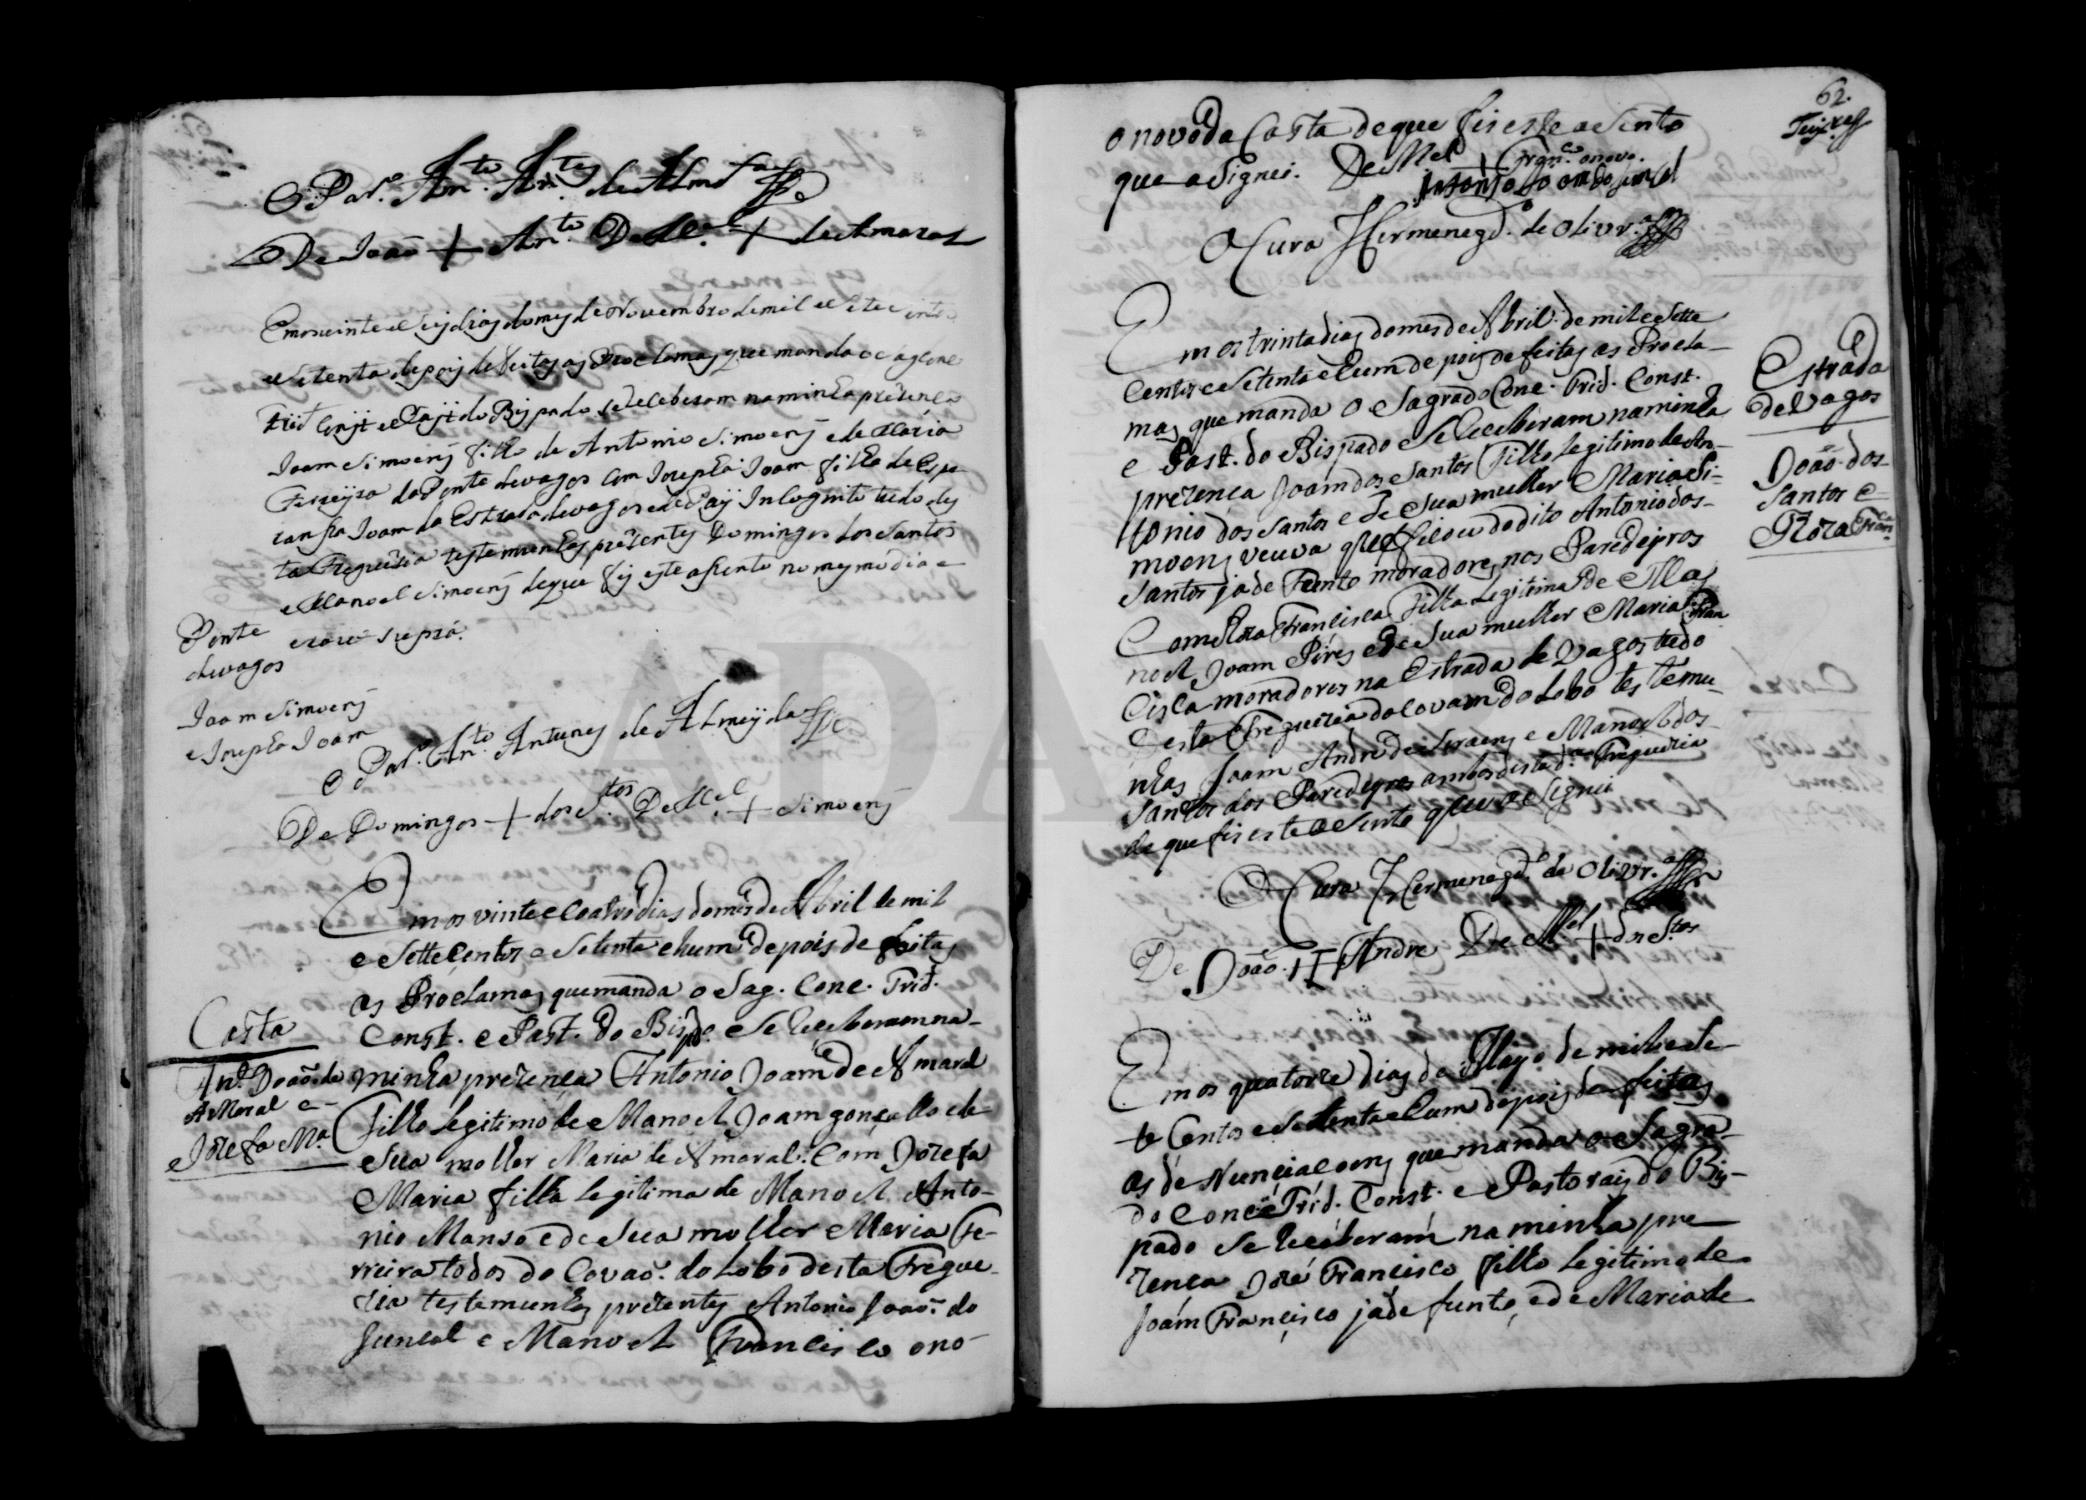 O Par.º Ant.º An.tes de Almd.ª
De João + Ant.º De M.el + de Amaral
Emos vinte e seij dias do mes de Novembro de mil e sete centos
e setenta depoij de feitas as Proclamas que manda o çag Conc
trid Conjt e Pajt do Bijpado se receberam na minha prezença
Joam Simoenj filho de Antonio Simoenj e de Maria
Ferreyra da Ponte de vagos com Jozepha Joam filha de Espe
ransa Joam da Estrada de vagos e de Paij Incognito tudo des
ta Freguezia testemunhas prezentes Domingos dos Santos
e Manoel Simoenj de que fij este asento no mesmo dia e
era ut supra.
Ponte
de vagos
Joam Simoenj
e Jozepha Joam
O Par.º Ant.º Antunes de Almeyda
De Domingos + dos S.tos De M.el + Simoenj
Emos vinte e coatro dias do mes de Abril de mil
e Sette Centos e Setenta e hum depois de feitas
as Proclamas que manda o Sag. Conc. Trid.
Const. e Past. do Bispdo. Se Receberam na
Costa
Ant.º João de
Amaral e
Jozefa M.ª
minha prezença Antonio Joam de Amaral
Filho Legitimo de Manoel Joam gonçallo e de
Sua molher Maria de Amaral. Com Jozefa
Maria filha legitima de Manoel Anto-
nio Manso e de Sua molher Maria Fe-
rreira todos do Covaõ. do Lobo desta Fregue-
zia testemunhas prezentes Antonio Joaõ. do
Juncal e Manoel Francisco ono
62.
Teix.ra
o novo da Costa de que fis este asento
que asignei. De Mel + Fran.co o novo.
Antonio Joam do Juncal
O Cura Hermenegd.º de Olivr.ª
Emos trinta dias do mes de Abril. de mil e Sette
Centos e Setenta e hum depois de feitas as Procla-
mas que manda o Sagrado Conc. Trid. Const.
e Past. do Bispado e Se Receberam na minha
prezença Joam dos Santos Filho legitimo de An-
tonio dos Santos e de Sua mulher Maria Si-
moens veuva que ficou do dito Antonio dos-
Santos ja defunto moradores nos Paredeiros
Com Roza Francisca Filha Legitima de Ma-
noel Joam Pires e de Sua mulher Maria Fran
Cisca moradores na Estrada de Vagos tudo
desta Freguezia do Covam do Lobo testemu-
nhas Joam Andre de Seraens e Manoel dos
Santos dos Paredeiros ambos desta d.ª Freguezia
de que fis este asento que asignei
Estrada
de Vagos
João dos
Santos e
Roza Fran.ca
O Cura Hermenegd.º de Olivr.ª
De João. + Andre De M.el + dos S.tos
Emos quatorze dias de Mayo. de mil e Se-
te Centos e Setenta e hum depois de feitas
as de Nunciacoens que manda o Sagra-
do Conc. Trid. Const. e Pastorais do Bis-
pado Se Receberam na minha pre
zenca Jozé Francisco filho Legitimo de
Joam Francisco ja defunto, e de Maria de